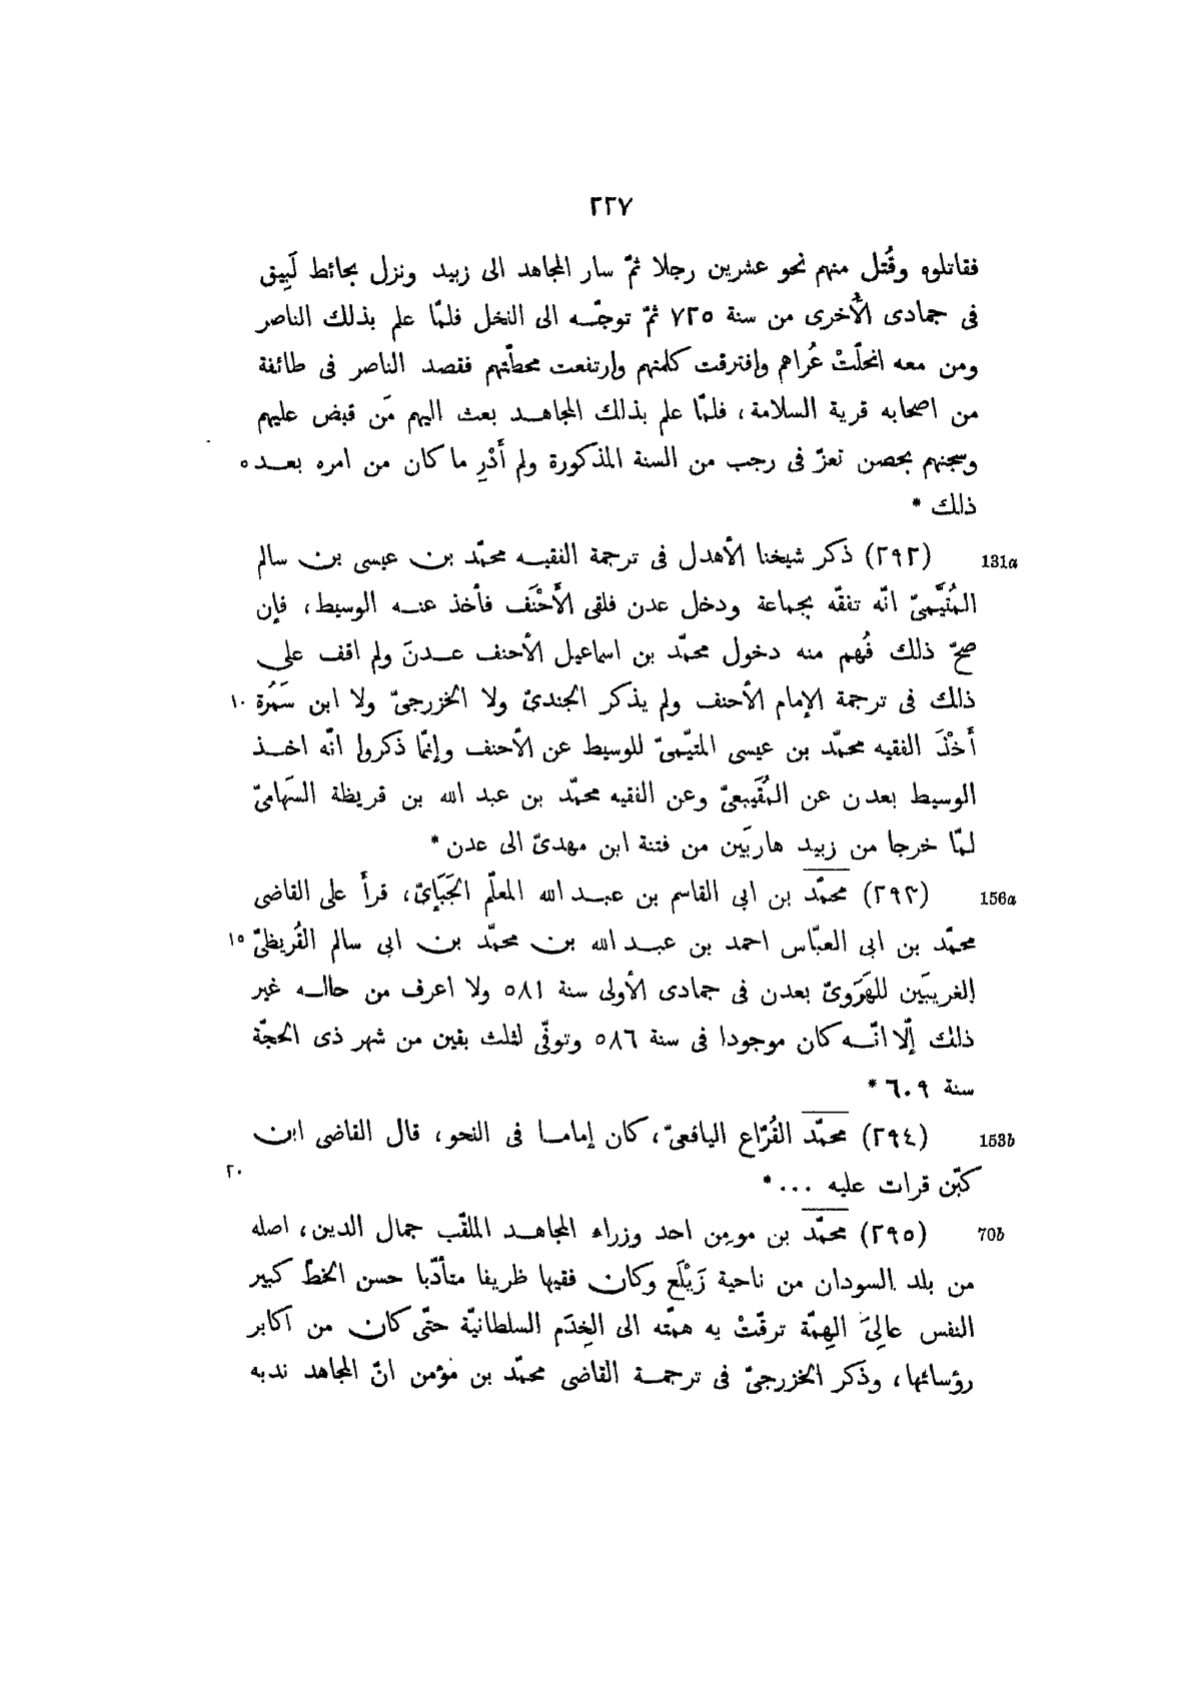 ٢٢٧
فقاتلوه وقُتل منهم نحو عشرين رجلا ثمّ سار المجاهد الى زبيد ونزل بحائط لَبِيق
فى جمادى الأُخرى من سنة ٧٢٥ ثمّ توجّه الى النخل فلمّا علم بذلك الناصر
ومن معه انحلّتْ عُراهم وإفترقت كلمتهم وإرتفعت محطّتهم فقصد الناصر فى طائفة
من اصحابه قرية السلامة، فلمّا علم بذلك المجاهد بعث اليهم مَن قبض عليهم
وسجنهم بحصن تعزّ فى رجب من السنة المذكورة ولم أَدْرِ ما كان من امره بعد ٥
ذلك *
131a (٢٩٢) ذكر شيخنا الأهدل فى ترجمة الفقيه محمّد بن عيسى بن سالم
المُتَيَّمىّ انّه تفقّه بجماعة ودخل عدن فلقى الأَحْنَف فأخذ عنه الوسيط، فإن
صحّ ذلك فُهم منه دخول محمّد بن اسماعيل الأحنف عدنَ ولم اقف على
ذلك فى ترجمة الإمام الأحنف ولم يذكر الجندىّ ولا الخزرجىّ ولا ابن سَمُرة ١٠
أَخْذَ الفقيه محمّد بن عيسى المتيّمىّ للوسيط عن الأحنف وإنمّا ذكروا انّه اخذ
الوسيط بعدن عن المُقَيبعىّ وعن الفقيه محمّد بن عبد الله بن قريظة السَهامىّ
لمّا خرجا من زبيد هاربَين من فتنة ابن مهدىّ الى عدن *
156a (٢٩٣) محمّد بن ابى القاسم بن عبد الله المعلّم الجَبَإىّ، قرأَ على القاضى
محمّد بن ابى العبّاس احمد بن عبد الله بن محمّد بن ابى سالم القُريظىّ ١٥
الغريبَين للهَرَوىّ بعدن فى جمادى الأولى سنة ٥٨١ ولا اعرف من حاله غير
ذلك إلّا انّه كان موجودا فى سنة ٥٨٦ وتوفّى لثلث بقين من شهر ذى الحجّة
سنة ٦٠٩ *
153b (٢٩٤) محمّد القُرّاع اليافعىّ، كان إماما فى النحو، قال القاضى ابن
كبّن قرات عليه ... * ٢٠
70b (٢٩٥) محمّد بن مومن احد وزراء المجاهد الملقّب جمال الدين، اصله
من بلد السودان من ناحية زَيْلَع وكان فقيها ظريفا متأدّبا حسن الخطّ كبير
النفس عالِىَ الهِمّة ترقّتْ به همّته الى الخِدَم السلطانيّة حتّى كان من اكابر
رؤسائها، وذكر الخزرجىّ فى ترجمة القاضى محمّد بن مؤمن انّ المجاهد ندبه